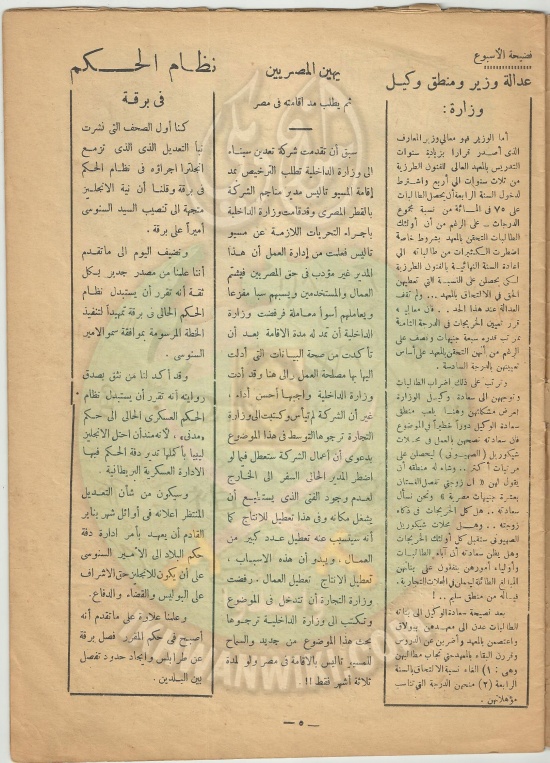 فضيحة الأسبوع
عدالة وزير ومنطق وكيل
وزارة :
أما الوزير فهو معالى وزير المعارف
الذى أصدر قرارا بزيادة سنوات
التدريس بالمعهد العالى للفنون الطرزية
من ثلاث سنوات الى أربع واشترط
لدخول السنة الرابعة أن يحصل الطالبات
على ٧٥ فى المائة من نسبة مجموع
الدرجات ــ على الرغم من أن أولئك
الطالبات التحقن بالمعهد بشروط خاصة
اضطرت الكثيرات من طالباته الى
اعادة السنة النهائية بالفنون الطرزية
لكى يحصلن على النسبة التى تعطيهن
الحق فى الالتحاق بالمعهد ... ولم تقف
العدالة عند هذا الحد .. فان معاليه
قرر تعيين الخريجات فى الدرجة الثامنة
بمرتب قدره سبعة جنيهات ونصف على
الرغم من أنهن التحقن بالمعهد على أساس
تعيينهن بالدرجة السادسة .
وترتب على ذلك اضراب الطالبات
وتوجههن الى سعادة وكيل الوزارة
لعرض مشكلتهن وهنا يلعب منطق
سعادة الوكيل دوراً خطيراً فى الموضوع
فان سعادته نصحهن بالعمل فى محلات
شيكوريل ( الصهيونى ) ليحصلن على
مرتبات أكثر .. وشاء له منطقه أن
يقول لهن « ان زوجتى تفصل الفستان
بعشرة جنيهات مصرية » ونحن نسأل
سعادته .. هل كل الخريجات فى ذكاء
زوجته .. وهل محلات شيكوريل
الصهيونى ستقبل كل أولئك الخريجات
وهل يظن سعادته أن آباء الطالبات
وأولياء أمورهن ينفقون على بناتهن
المبالغ الطائلة ليعملن فى المحلات التجارية .
فياله من منطق سليم .. !
بعد نصيحة سعادة الوكيل الى بناته
الطالبات عدن الى معهدهن ببولاق
واعتصمن بالمعهد وأضربن عن الدروس
وقررن البقاء بالمعهد حتى تجاب مطالبهن
وهى : (١) الغاء نسبة الالتحاق بالسنة
الرابعة (٢) منحهن الدرجة التى تناسب
مؤهلاتهن .
يهين المصريين
ثم يطلب مد اقامته فى مصر
سبق أن تقدمت شركة تعدين سيناء
الى وزارة الداخلية تطلب الترخيص بمد
إقامة المسيو تاليس مدير مناجم الشركة
بالقطر المصرى وقد قامت وزارة الداخلية
باجراء التحريات اللازمة عن مسيو
تاليس فعلمت من إدارة العمل أن هذا
المدير غير مؤدب فى حق المصريين فيشتم
العمال والمستخدمين ويسبهم سبا مفزعا
ويعاملهم أسوأ معاملة فرفضت وزارة
الداخلية أن تمد له مدة الاقامة بعد أن
تأكدت من صحة البيانات التى أدلت
اليها بها مصلحة العمل والى هنا وقد أدت
وزارة الداخلية واجبها أحسن أداء .
غير أن الشركة لم تيأس وكتبت الى وزارة
التجارة ترجوها التوسط فى هذا الموضوع
بدعوى أن أعمال الشركة ستعطل فيما لو
اضطر المدير الحالى السفر الى الخارج
لعدم وجود الفنى الذى يستطيع أن
يشغل مكانه وفى هذا تعطيل للانتاج كما
أنه سيتسبب عنه تعطيل عدد كبير من
العمال . ويبدو أن هذه الاسباب ،
تعطيل الانتاج تعطيل العمال . رفضت
وزارة التجارة أن تتدخل فى الموضوع
وتكتب الى وزارة الداخلية ترجوها
بحث هذا الموضوع من جديد والسماح
للمسيو تاليس بالاقامة فى مصر ولو لمدة
ثلاثة أشهر فقط !!.
نظام الحكم
فى برقة
كنا أول الصحف التى نشرت
نبأ التعديل الذى الذى تزمع
انجلترا اجراؤه فى نظام الحكم
فى برقة وقلنا أن نية الانجليز
متجهة الى تنصيب السيد السنوسى
أميراً على برقة .
ونضيف اليوم الى ماتقدم
أننا علمنا من مصدر جدير بكل
ثقة أنه تقرر أن يستبدل نظام
الحكم الحالى فى برقة تمهيداً لتنفيذ
الخطة المرسومة بموافقة سمو الامير
السنوسى .
وقد أكد لنا من نثق بصدق
روايته أنه تقرر أن يستبدل نظام
الحكم العسكرى الحالى الى حكم
« مدنى » . لانه منذ أن احتل الانجليز
ليبيا بأكملها تدير دفة الحكم فيها
الادارة العسكرية البريطانية .
وسيكون من شأن التعديل
المنتظر اعلانه فى أوائل شهر يناير
القادم أن يعهد بأمر ادارة دفة
حكم البلاد الى الأمير السنوسى
على أن يكون للانجليز حق الاشراف
على البوليس والقضاء والدفاع .
وعلمنا علاوة على ماتقدم أنه
أصبح فى حكم المقرر فصل برقة
عن طرابلس وايجاد حدود تفصل
بين البلدين .
— ٥ —